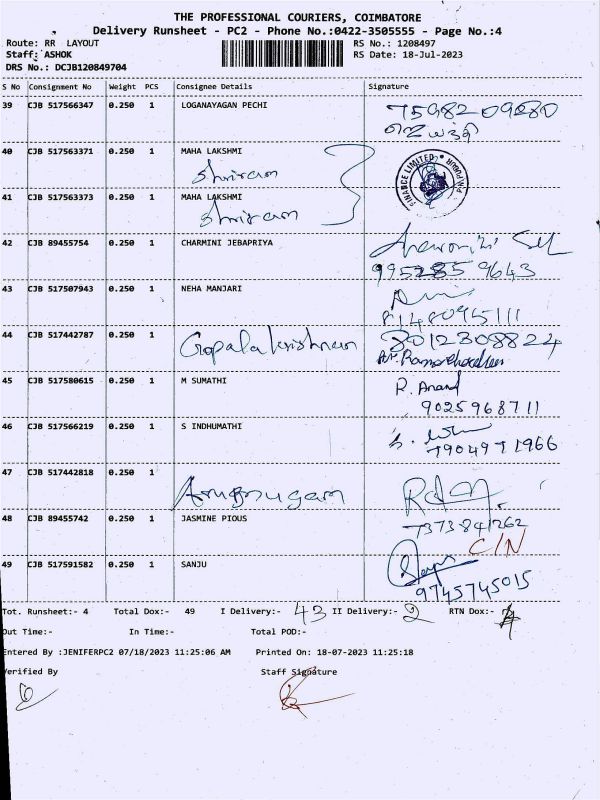 THE PROFESSIONAL COURIERS, COIMBATORE
Delivery Runsheet - PC2 - Phone No.:0422-3505555 - Page No.:4
Route: RR LAYOUT RS No.: 1208497
Staff: ASHOK RS Date: 18-Jul-2023
DRS No.: DCJB120849704
S No Consignment No Weight PCS Consignee Details Signature
39 CJB 517566347 0.250 1 LOGANAYAGAN PECHI 7598209880
40 CJB 517563371 0.250 1 MAHA LAKSHMI
Shriram FINANCE LIMITED
41 CJB 517563373 0.250 1 MAHA LAKSHMI
Shriram
42 CJB 89455754 0.250 1 CHARMINI JEBAPRIYA
9952859643
43 CJB 517507943 0.250 1 NEHA MANJARI
8148095111
44 CJB 517442787 0.250 1 Gopalakrishnan 8012308824
45 CJB 517580615 0.250 1 M SUMATHI R. Anand
9025968711
46 CJB 517566219 0.250 1 S INDHUMATHI
7904971966
47 CJB 517442818 0.250 1 Arumugam
48 CJB 89455742 0.250 1 JASMINE PIOUS 7373841262
C/N
49 CJB 517591582 0.250 1 SANJU
9745745015
Tot. Runsheet:- 4 Total Dox:- 49 I Delivery:- 43 II Delivery:- 2 RTN Dox:- 4
Out Time:- In Time:- Total POD:-
Entered By :JENIFERPC2 07/18/2023 11:25:06 AM Printed On: 18-07-2023 11:25:18
Verified By Staff Signature